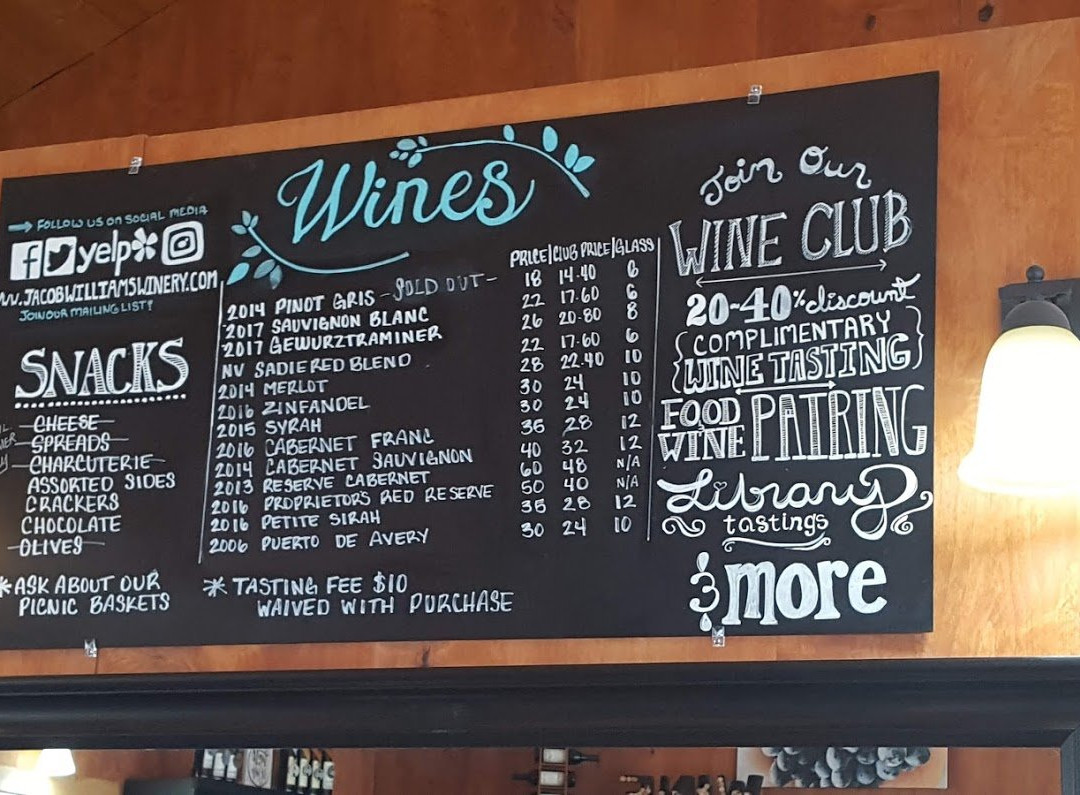 → FOLLOW US ON SOCIAL MEDIA
yelp
WW.JACOBWILLIAMSWINERY.COM
JOIN OUR MAILING LIST!
SNACKS
CHEESE
SPREADS
CHARCUTERIE
ASSORTED SIDES
CRACKERS
CHOCOLATE
OLIVES
*ASK ABOUT OUR
PICNIC BASKETS
Wines
PRICE|CLUB PRICE|GLASS
2014 PINOT GRIS -SOLD OUT- 18 14.40 6
2017 SAUVIGNON BLANC 22 17.60 6
2017 GEWURZTRAMINER 26 20.80 8
NV SADIE RED BLEND 22 17.60 6
2014 MERLOT 28 22.40 10
2016 ZINFANDEL 30 24 10
2015 SYRAH 30 24 10
2016 CABERNET FRANC 35 28 12
2014 CABERNET SAUVIGNON 40 32 12
2013 RESERVE CABERNET 60 48 N/A
2016 PROPRIETOR'S RED RESERVE 50 40 N/A
2016 PETITE SIRAH 35 28 12
2006 PUERTO DE AVERY 30 24 10
* TASTING FEE $10
WAIVED WITH PURCHASE
Join Our
WINE CLUB
20-40% discount
COMPLIMENTARY
WINE TASTING
FOOD WINE PAIRING
Library
tastings
& more